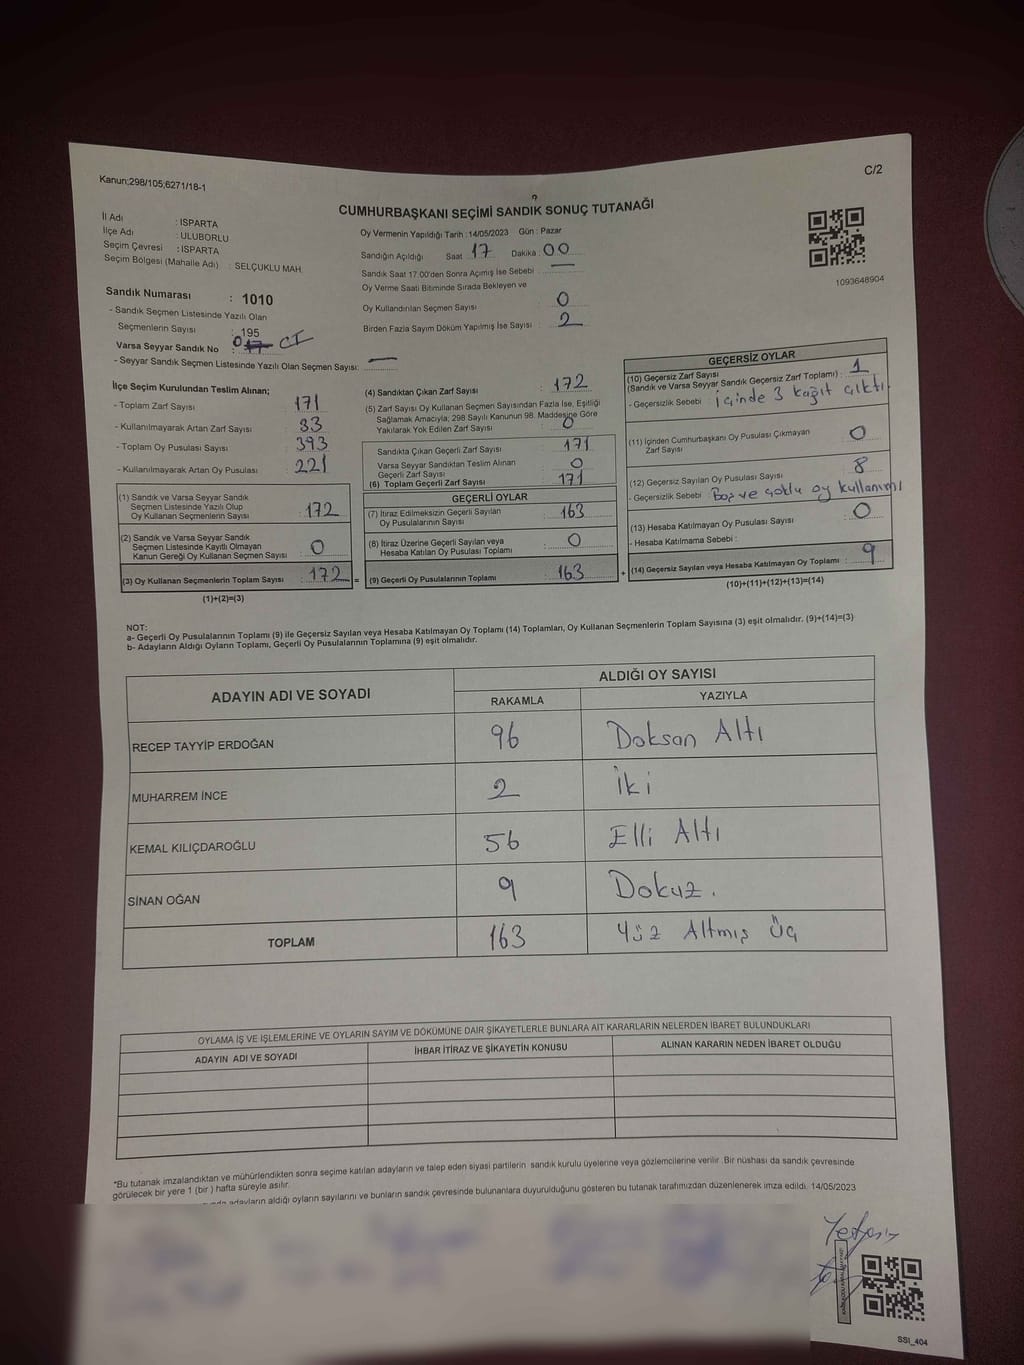 Kanun;298/105;6271/18-1
C/2
CUMHURBAŞKANI SEÇİMİ SANDIK SONUÇ TUTANAĞI
İl Adı : ISPARTA
İlçe Adı : ULUBORLU
Seçim Çevresi : ISPARTA
Seçim Bölgesi (Mahalle Adı) : SELÇUKLU MAH.
Sandık Numarası : 1010
- Sandık Seçmen Listesinde Yazılı Olan
Seçmenlerin Sayısı : 195
Varsa Seyyar Sandık No :
- Seyyar Sandık Seçmen Listesinde Yazılı Olan Seçmen Sayısı: —
Oy Vermenin Yapıldığı Tarih :14/05/2023 Gün : Pazar
Sandığın Açıldığı Saat : 17 Dakika : 00
Sandık Saat 17:00'den Sonra Açımış İse Sebebi : —
Oy Verme Saati Bitiminde Sırada Bekleyen ve
Oy Kullandırılan Seçmen Sayısı : 0
Birden Fazla Sayım Döküm Yapılmış İse Sayısı : 2
1093648904
İlçe Seçim Kurulundan Teslim Alınan;
- Toplam Zarf Sayısı : 171
- Kullanılmayarak Artan Zarf Sayısı : 33
- Toplam Oy Pusulası Sayısı : 393
- Kullanılmayarak Artan Oy Pusulası : 221
(1) Sandık ve Varsa Seyyar Sandık
Seçmen Listesinde Yazılı Olup
Oy Kullanan Seçmenlerin Sayısı : 172
(2) Sandık ve Varsa Seyyar Sandık
Seçmen Listesinde Kayıtlı Olmayan
Kanun Gereği Oy Kullanan Seçmen Sayısı : 0
(3) Oy Kullanan Seçmenlerin Toplam Sayısı : 172 =
(1)+(2)=(3)
(4) Sandıktan Çıkan Zarf Sayısı : 172
(5) Zarf Sayısı Oy Kullanan Seçmen Sayısından Fazla İse, Eşitliği
Sağlamak Amacıyla; 298 Sayılı Kanunun 98. Maddesine Göre
Yakılarak Yok Edilen Zarf Sayısı : 0
Sandıkta Çıkan Geçerli Zarf Sayısı : 171
Varsa Seyyar Sandıktan Teslim Alınan
Geçerli Zarf Sayısı : 0
(6) Toplam Geçerli Zarf Sayısı : 171
GEÇERLİ OYLAR
(7) İtiraz Edilmeksizin Geçerli Sayılan
Oy Pusulalarının Sayısı : 163
(8) İtiraz Üzerine Geçerli Sayılan veya
Hesaba Katılan Oy Pusulası Toplamı : 0
(9) Geçerli Oy Pusulalarının Toplamı : 163 +
GEÇERSİZ OYLAR
(10) Geçersiz Zarf Sayısı
(Sandık ve Varsa Seyyar Sandık Geçersiz Zarf Toplamı) : 1
- Geçersizlik Sebebi : içinde 3 kağıt çıktı
(11) İçinden Cumhurbaşkanı Oy Pusulası Çıkmayan
Zarf Sayısı : 0
(12) Geçersiz Sayılan Oy Pusulası Sayısı : 8
- Geçersizlik Sebebi : Boş ve çoklu oy kullanımı
(13) Hesaba Katılmayan Oy Pusulası Sayısı : 0
- Hesaba Katılmama Sebebi :
(14) Geçersiz Sayılan veya Hesaba Katılmayan Oy Toplamı : 9
(10)+(11)+(12)+(13)=(14)
NOT:
a- Geçerli Oy Pusulalarının Toplamı (9) ile Geçersiz Sayılan veya Hesaba Katılmayan Oy Toplamı (14) Toplamları, Oy Kullanan Seçmenlerin Toplam Sayısına (3) eşit olmalıdır. (9)+(14)=(3)
b- Adayların Aldığı Oyların Toplamı, Geçerli Oy Pusulalarının Toplamına (9) eşit olmalıdır.
ADAYIN ADI VE SOYADI
ALDIĞI OY SAYISI
RAKAMLA YAZIYLA
RECEP TAYYİP ERDOĞAN 96 Doksan Altı
MUHARREM İNCE 2 İki
KEMAL KILIÇDAROĞLU 56 Elli Altı
SİNAN OĞAN 9 Dokuz.
TOPLAM 163 Yüz Altmış Üç
OYLAMA İŞ VE İŞLEMLERİNE VE OYLARIN SAYIM VE DÖKÜMÜNE DAİR ŞİKAYETLERLE BUNLARA AİT KARARLARIN NELERDEN İBARET BULUNDUKLARI
ADAYIN ADI VE SOYADI İHBAR İTİRAZ VE ŞİKAYETİN KONUSU ALINAN KARARIN NEDEN İBARET OLDUĞU
*Bu tutanak imzalandıktan ve mühürlendikten sonra seçime katılan adayların ve talep eden siyasi partilerin sandık kurulu üyelerine veya gözlemcilerine verilir .Bir nüshası da sandık çevresinde
görülecek bir yere 1 (bir ) hafta süreyle asılır.
adayların aldığı oyların sayılarını ve bunların sandık çevresinde bulunanlara duyurulduğunu gösteren bu tutanak tarafımızdan düzenlenerek imza edildi. 14/05/2023
SSI_404